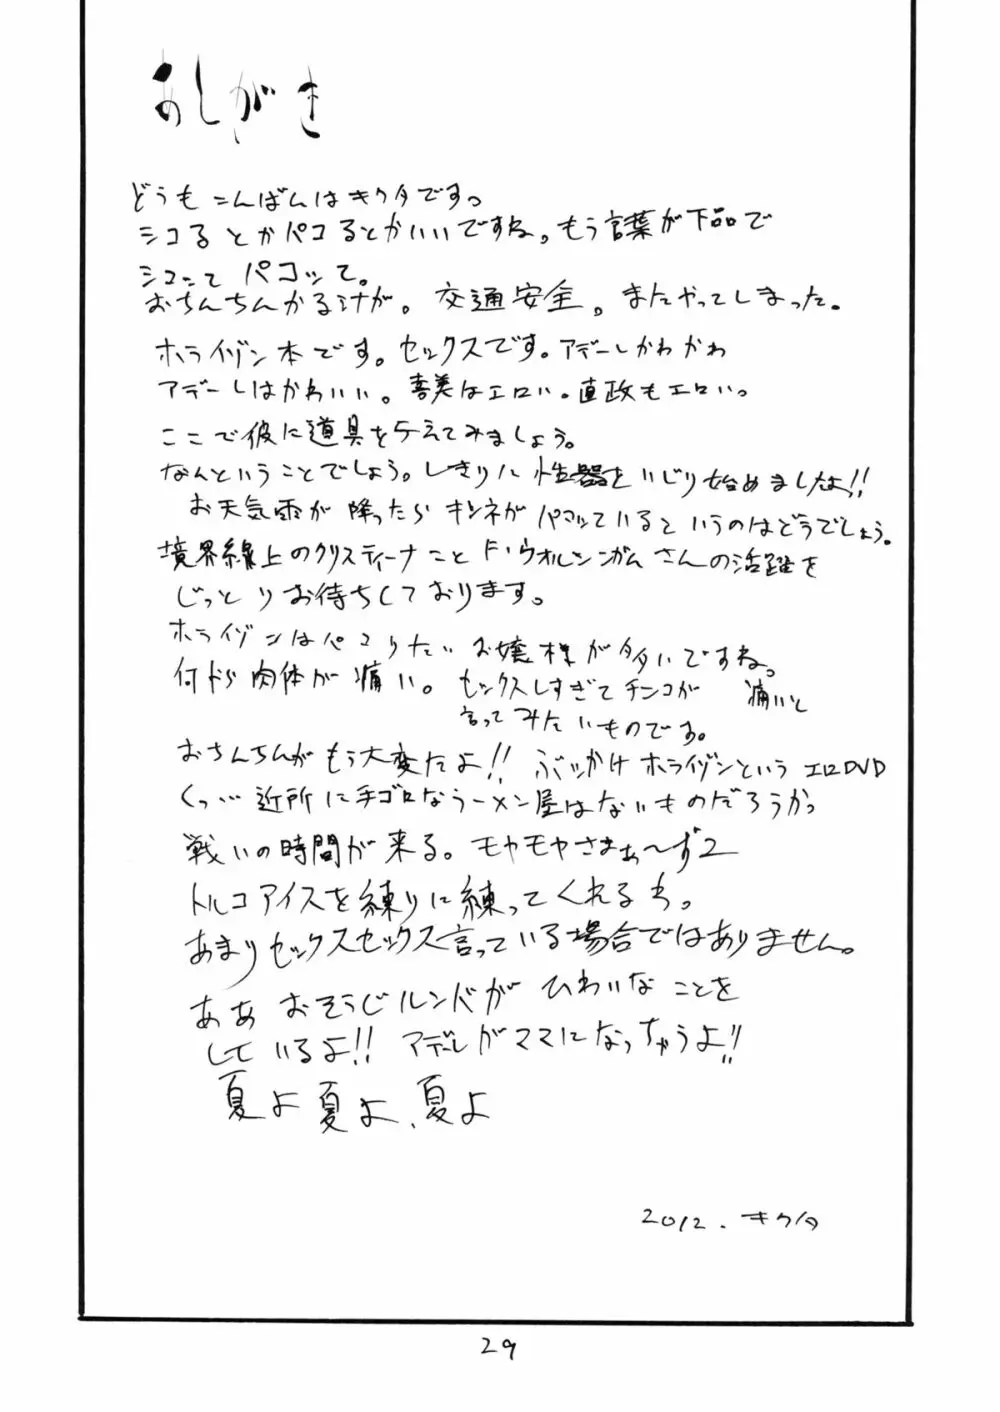 あしがき
どうもこんばんはキクタです。
シコるとかパコるとかいいですね。もう言葉が下品で
シコって パコッて。
おちんちんかる汁が。交通安全。またやってしまった。
ホライゾン本です。セックスです。アデーレかわかわ
アデーレはかわいい。喜美はエロい。直政もエロい。
ここで彼に道具を与えてみましょう。
なんということでしょう。しきりに性器をいじり始めましたよ!!
お天気雨が降ったらキツネがパコッているというのはどうでしょう。
境界線上のクリスティーナこと F・ウオルシンガムさんの活躍を
じっとりお待ちしております。
ホライゾンはパコりたいお嬢様が多いですね。
何から肉体が痛い。セックスしすぎてチンコが 痛いと
言ってみたいものです。
おちんちんがもう大変だよ!! ぶっかけホライゾンというエロDVD
くっ… 近所に手ゴロなラーメン屋はないものだろうか。
戦いの時間が来る。モヤモヤさまぁ〜ず2
トルコアイスを練りに練ってくれるわ。
あまりセックスセックス言っている場合ではありません。
ああ おそうじルンバが ひわいな ことを
しているよ!! アデーレがママになっちゃうよ!!
夏よ 夏よ、夏よ
2012. キクタ
29